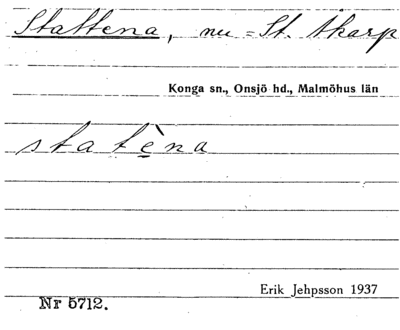 Stattena, nu = St. tharp
Konga sn., Onsjö hd., Malmöhus län
statèna
Erik Jehpsson 1937
Nr 5712.